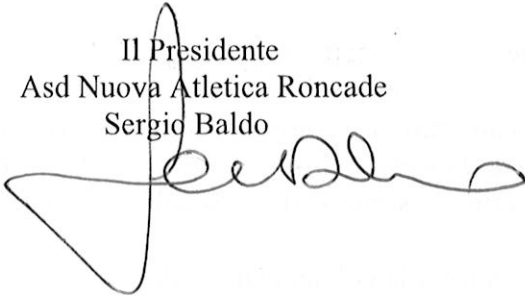 Il Presidente
Asd Nuova Atletica Roncade
Sergio Baldo